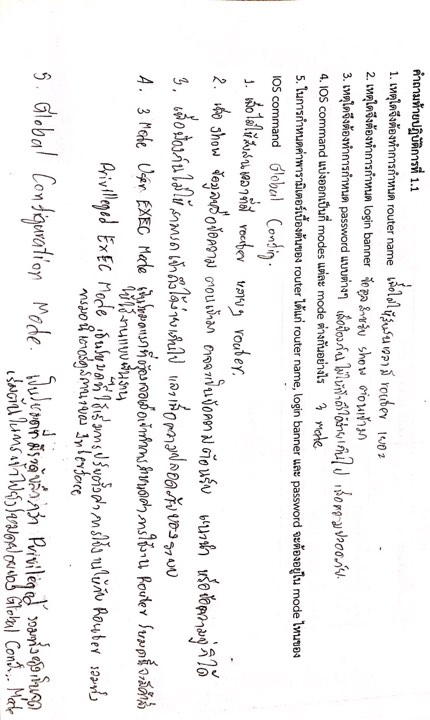 คำถามท้ายปฏิบัติการที่ 1.1
1. เหตุใดจึงต้องทำการกำหนด router name เพื่อไม่ให้สับสนเวลามี router เยอะ
2. เหตุใดจึงต้องทำการกำหนด login banner ข้อมูลสำหรับ show ตอนเข้ามา
3. เหตุใดจึงต้องทำการกำหนด password แบบต่างๆ เพื่อป้องกันไม่ให้เข้าถึงได้ง่ายเกินไป เพื่อความปลอดภัย.
4. IOS command แบ่งออกเป็นกี่ modes แต่ละ mode ต่างกันอย่างไร 3 mode
5. ในการกำหนดค่าพารามิเตอร์เบื้องต้นของ router ได้แก่ router name, login banner และ password จะต้องอยู่ใน mode ไหนของ
IOS command Global Config.
1. เพื่อไม่ให้สับสนเวลาที่มี router หลายๆ router.
2. เพื่อ show ข้อมูลหรือข้อความ ตอนเข้ามา อาจจะเป็นข้อความต้อนรับ แนะนำ หรือข้อความขู่ก็ได้
3. เพื่อป้องกันไม่ให้สามารถเข้าถึงได้ง่ายเกินไป และเพื่อความปลอดภัยของระบบ
4. 3 Mode User EXEC Mode เป็นโหมดแรกที่ต้องเจอเมื่อเข้าทำการกำหนดค่าการใช้งาน Router โหมดนี้จะมีคำสั่ง
ให้ใช้งานแบบพื้นฐาน
Privilleged EXEC Mode เป็นโหมดที่ใช้เริ่มการปรับตั้งค่าการใช้งานให้กับ Router รวมทั้ง
การมอนิเตอร์ดูสถานะของ Interface
5. Global Configuration Mode. เป็นโหมดที่มีระดับลึกกว่า Privileged รวมทั้งยังเป็นจุด
เริ่มต้นในการเข้าไปยังโหมดย่อยของ Global Mode